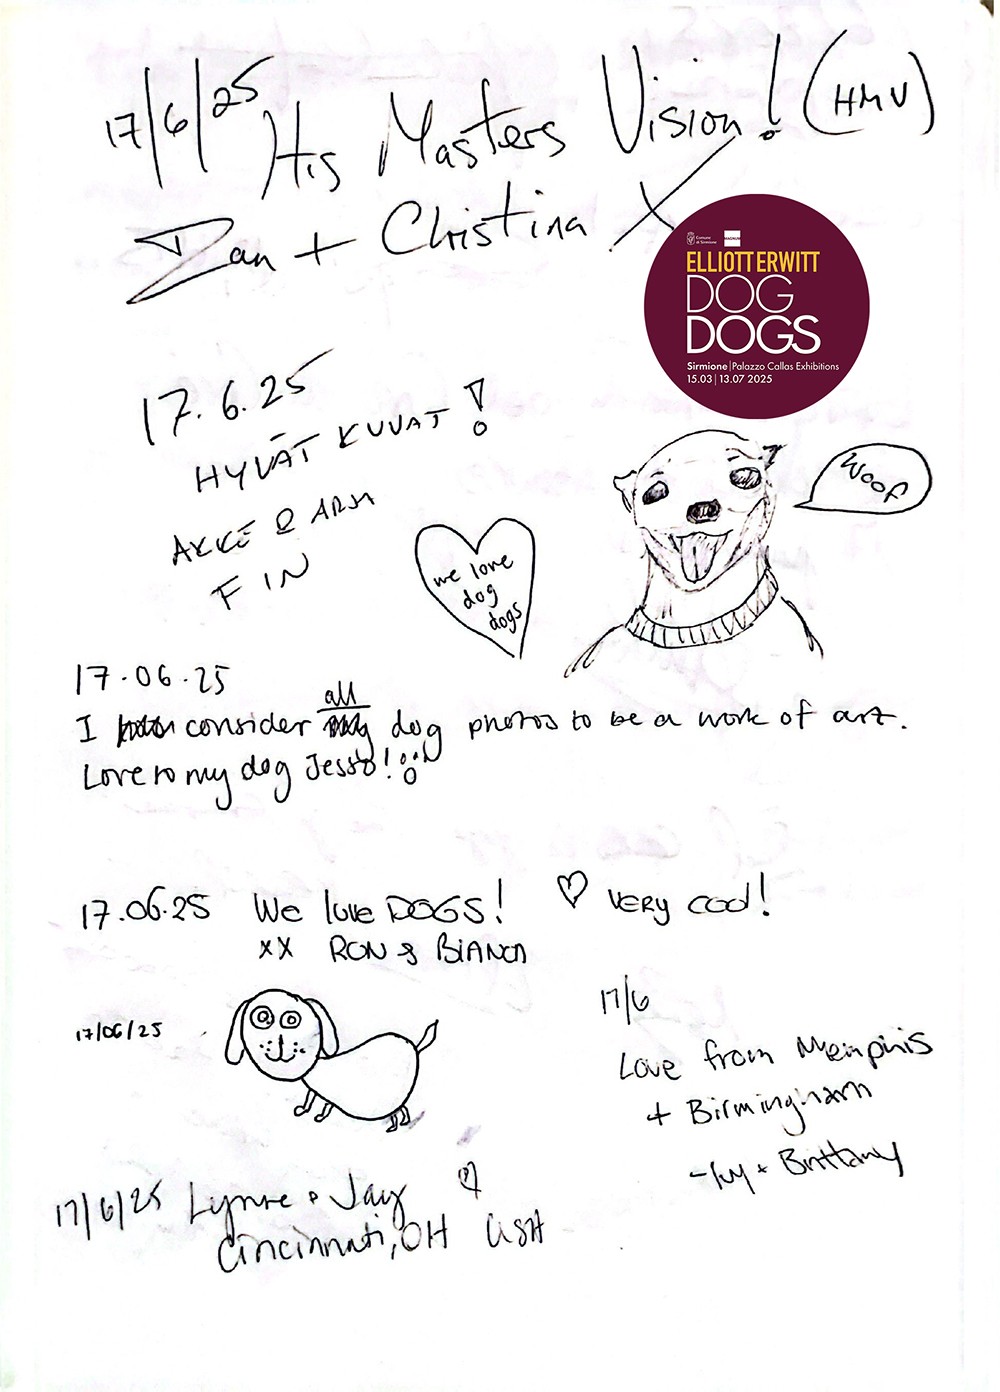 17/6/25 His Masters Vision! (HMV)
Dan + Christina X
Comune di Sirmione
MAGNUM
ELLIOTT ERWITT
DOG
DOGS
Sirmione | Palazzo Callas Exhibitions
15.03 | 13.07 2025
17.6.25
HYVÄT KUVAT!
AKKE & ARJA
FIN
Woof
we love
dog
dogs
17.06.25
I consider all dog photos to be a work of art.
Love to my dog Jesso!
17.06.25 We love DOGS! ♡ VERY COOL!
xx RON & BIANCA
17/06/25
17/6
Love from Memphis
+ Birmingham
- Ivy + Brittany
17/6/25 Lynne & Jay ♡
Cincinnati, OH USA